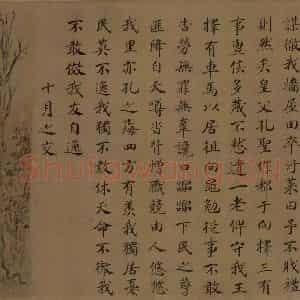 謀徹我牆屋田卒汙萊曰予不戕禮
則然矣皇父孔聖作都于向擇三有
事亶侯多藏不憖遺一老俾守我王
擇有車馬以居徂向黽勉從事不敢
告勞無罪無辜讒口囂囂下民之孽
匪降自天噂沓背憎職競由人悠悠
我里亦孔之痗四方有羨我獨居憂
民莫不逸我獨不敢休天命不徹我
不敢傚我友自逸
十月之交